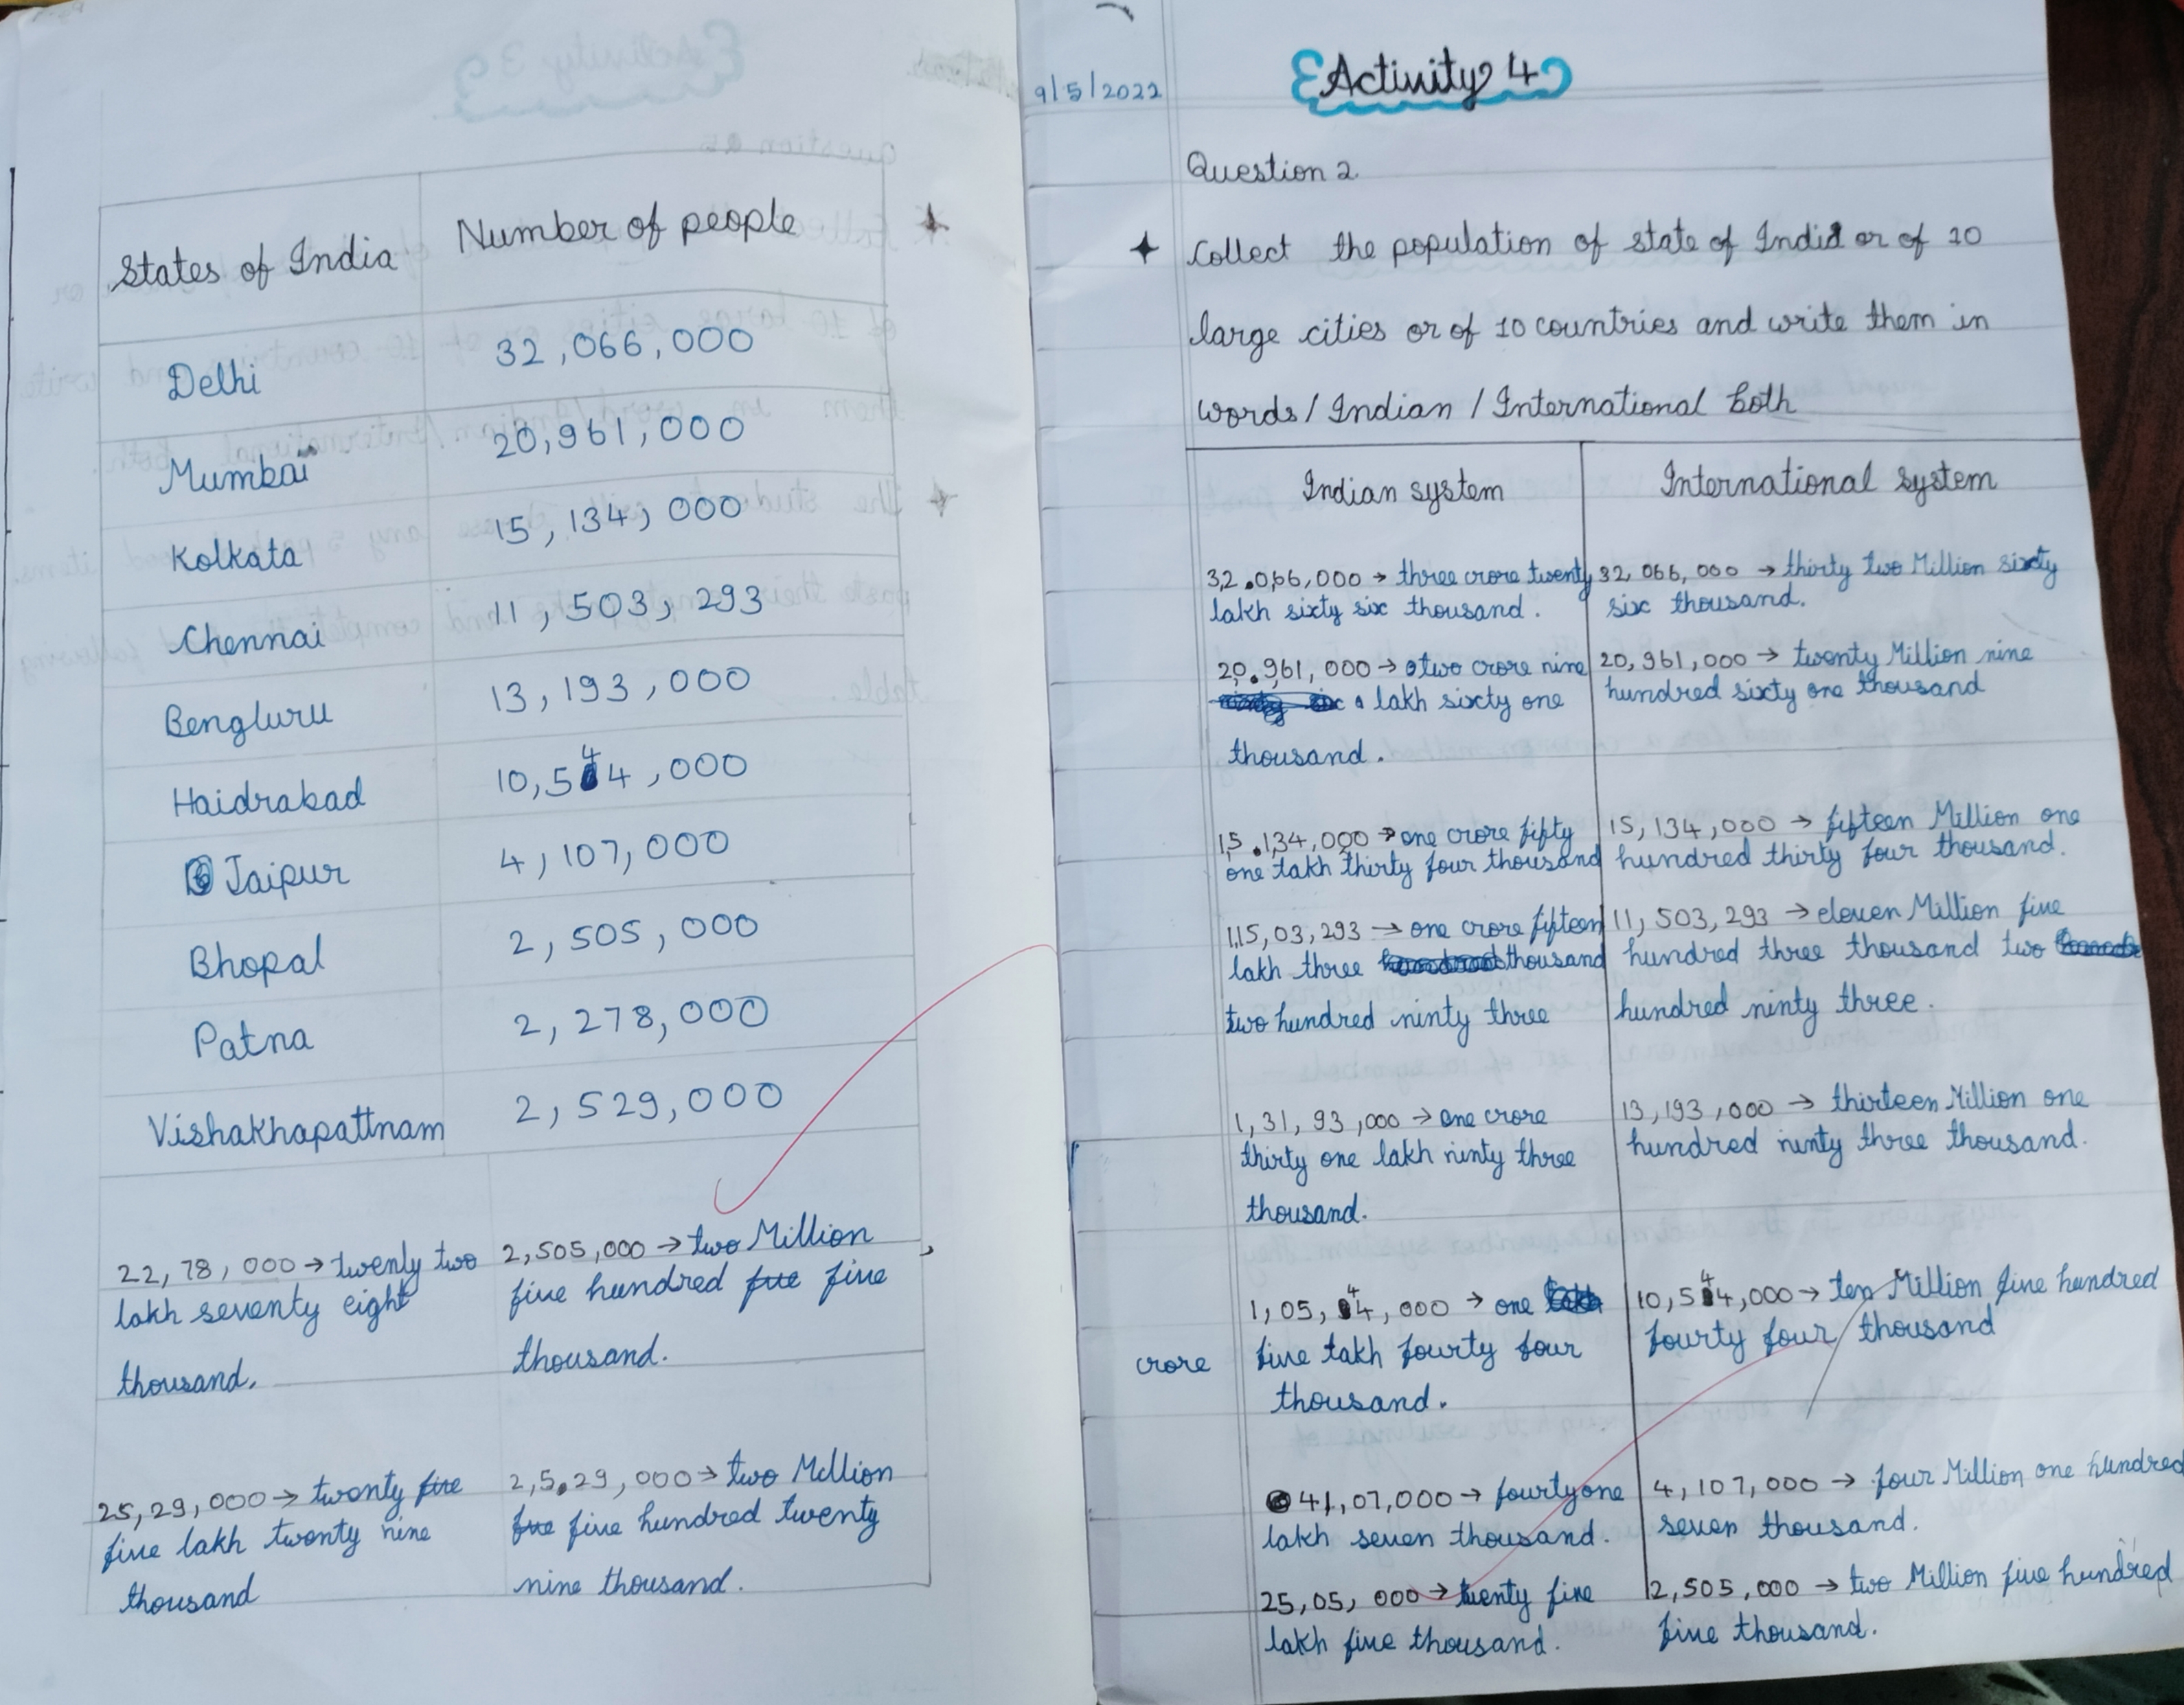 States of India Number of people
Delhi 32,066,000
Mumbai 20,961,000
Kolkata 15,134,000
Chennai 11,503,293
Bengluru 13,193,000
Haidrabad 10,544,000
Jaipur 4,107,000
Bhopal 2,505,000
Patna 2,278,000
Vishakhapattnam 2,529,000
22,78,000 → twenty two
lakh seventy eight
thousand.
2,505,000 → two Million
five hundred five five
thousand.
25,29,000 → twenty five
five lakh twenty nine
thousand
2,5,29,000 → two Million
five five hundred twenty
nine thousand.
9/5/2022
Activity 4
Question 2
Collect the population of state of India or of 10
large cities or of 10 countries and write them in
words / Indian / International both
Indian system International system
32,066,000 → three crore twenty
lakh sixty six thousand.
32,066,000 → thirty two Million sixty
six thousand.
20,961,000 → two crore nine
lakh sixty one
thousand.
20,961,000 → twenty Million nine
hundred sixty one thousand
15,134,000 → one crore fifty
one lakh thirty four thousand
15,134,000 → fifteen Million one
hundred thirty four thousand.
1,15,03,293 → one crore fifteen
lakh three thousand
two hundred ninty three
11,503,293 → eleven Million five
hundred three thousand two
hundred ninty three.
1,31,93,000 → one crore
thirty one lakh ninty three
thousand.
13,193,000 → thirteen Million one
hundred ninty three thousand.
1,05,44,000 → one
crore five lakh fourty four
thousand.
10,544,000 → ten Million five hundred
fourty four thousand
41,07,000 → fourty one
lakh seven thousand.
4,107,000 → four Million one hundred
seven thousand.
25,05,000 → twenty five
lakh five thousand.
2,505,000 → two Million five hundred
five thousand.